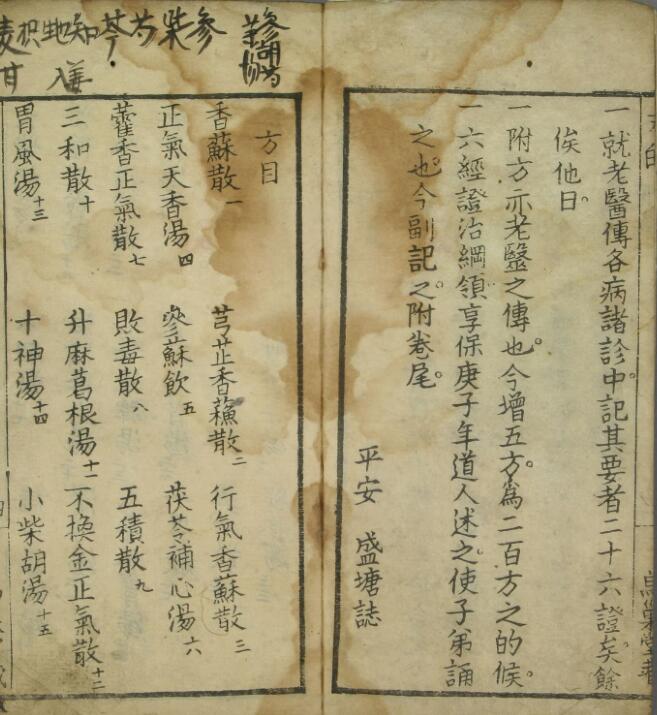 一就老醫傳各病諸診中記其要者二十六證矣餘
俟他日。
一附方亦老醫之傳也。今增五方。爲二百方之的候。
一六經證治綱領享保庚子年道人述之。使子弟誦
之也。今副記之。附卷尾。
平安 盛塘誌
參胡芍
方目
香蘇散一 芎芷香蘓散二 行氣香蘇散三
正氣天香湯四 參蘇飲五 茯苓補心湯六
藿香正氣散七 敗毒散八 五積散九
三和散十 升麻葛根湯十一 不換金正氣散十二
胃風湯十三 十神湯十四 小柴胡湯十五
參柴芍芩知地枳
甘 姜入